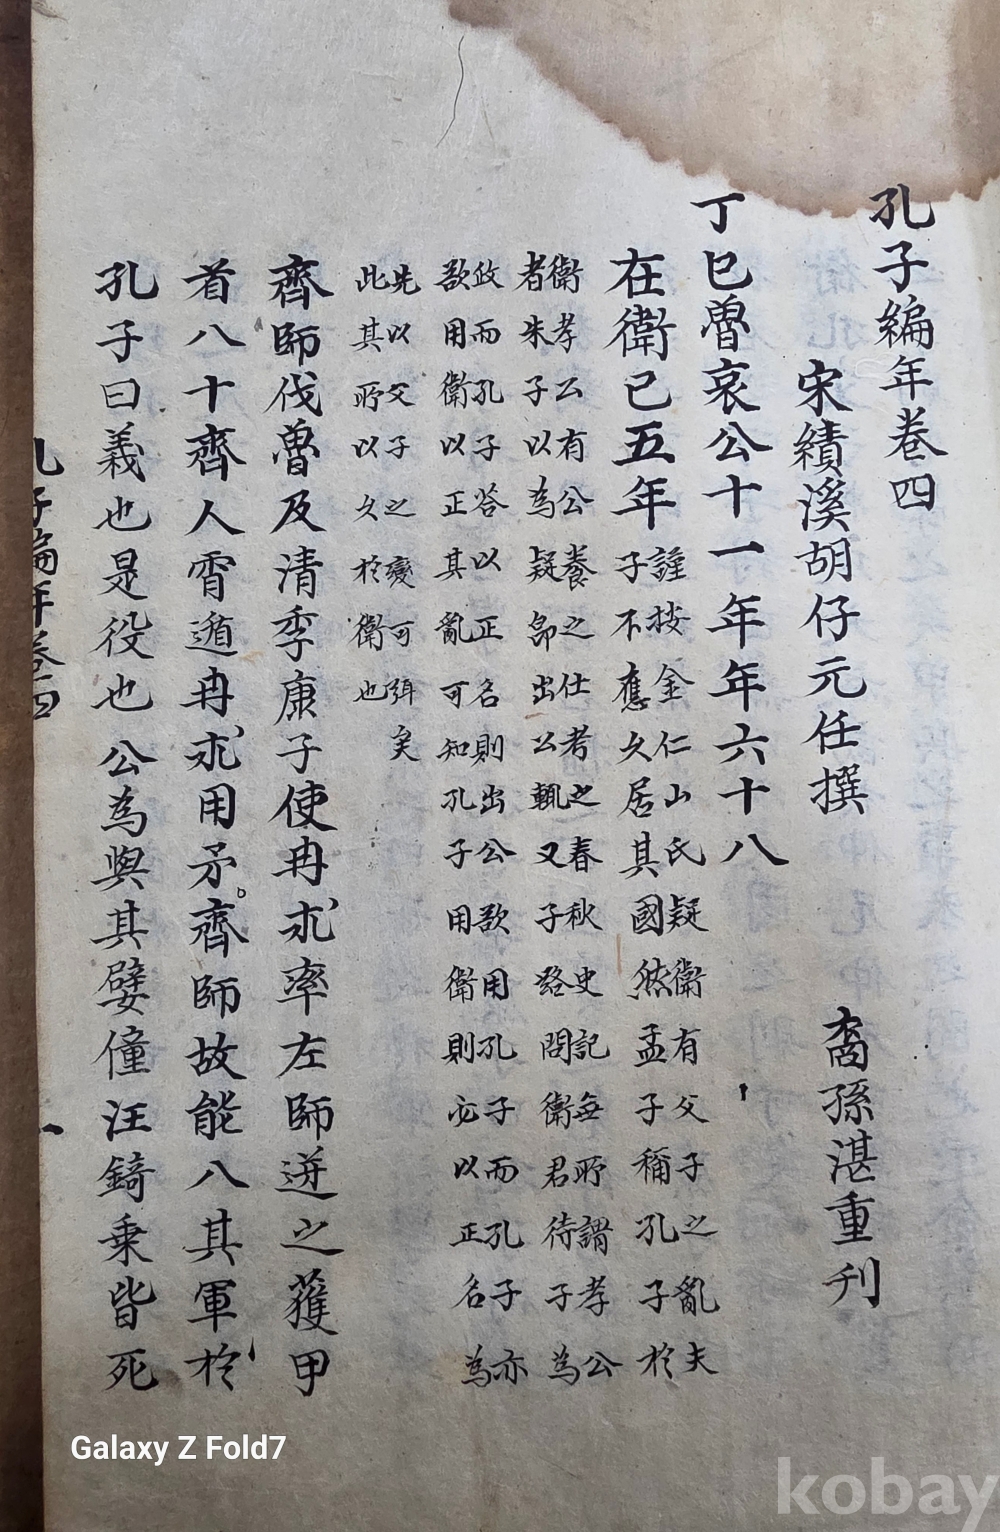 孔子編年卷四
宋績溪胡仔元任撰 裔孫湛重刊
丁巳魯哀公十一年年六十八
在衛已五年 謹按金仁山氏疑衛有父子之亂夫
子不應久居其國然孟子稱孔子於
衛孝公有公養之仕考之春秋史記每所謂孝公
者朱子以為疑即出公輒又子路問衛君待子為
政而孔子答以正名則出公欲用孔子而孔子亦
欲用衛以正其亂可知孔子用衛則必以正名為
先以父子之變可弭矣
此其所以久於衛也
齊師伐魯及清季康子使冉求率左師逆之獲甲
首八十齊人宵遁冉求用矛齊師故能八其軍於
孔子曰義也是役也公為與其嬖僮汪錡乗皆死
孔子編年卷四 一
Galaxy Z Fold7
kobay